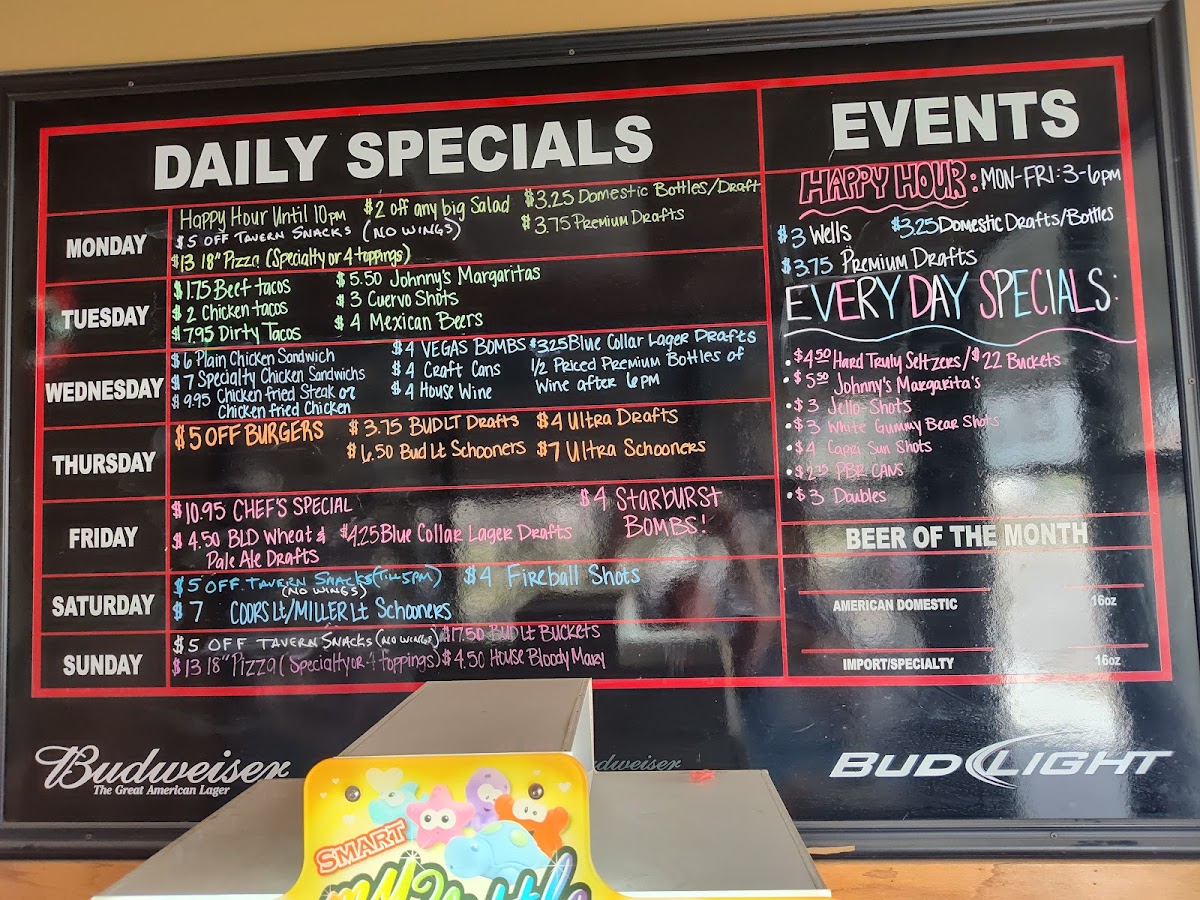 DAILY SPECIALS
MONDAY
Happy Hour Until 10pm
$2 off any big Salad
$3.25 Domestic Bottles/Draft
$5 OFF TAVERN SNACKS (NO WINGS)
$3.75 Premium Drafts
$13 18" Pizza (Specialty or 4 toppings)
TUESDAY
$1.75 Beef tacos
$5.50 Johnny's Margaritas
$2 Chicken tacos
$3 Cuervo Shots
$7.95 Dirty Tacos
$4 Mexican Beers
WEDNESDAY
$6 Plain Chicken Sandwich
$7 Specialty Chicken Sandwichs
$9.95 Chicken fried Steak or
Chicken fried Chicken
$4 VEGAS BOMBS
$4 Craft Cans
$4 House Wine
$3.25 Blue Collar Lager Drafts
1/2 Priced Premium Bottles of
Wine after 6PM
THURSDAY
$5 OFF BURGERS
$3.75 BUDLT Drafts
$4 Ultra Drafts
$6.50 Bud Lt Schooners
$7 Ultra Schooners
FRIDAY
$10.95 CHEF'S SPECIAL
$4.50 BLD Wheat &
Pale Ale Drafts
$4.25 Blue Collar Lager Drafts
$4 STARBURST
BOMBS!
SATURDAY
$5 OFF TAVERN SNACKS (Till 5PM)
(NO WINGS)
$4 Fireball Shots
$7 COORS Lt/MILLER Lt Schooners
SUNDAY
$5 OFF TAVERN SNACKS (NO WINGS)
$17.50 BUD Lt Buckets
$13 18" Pizza (Specialty or 4 toppings)
$4.50 House Bloody Mary
EVENTS
HAPPY HOUR: MON-FRI: 3-6pm
$3 Wells
$3.25 Domestic Drafts/Bottles
$3.75 Premium Drafts
EVERY DAY SPECIALS:
• $4.50 Hard Truly Seltzers/$22 Buckets
• $5.50 Johnny's Margarita's
• $3 Jello Shots
• $3 White Gummy Bear Shots
• $4 Capri Sun Shots
• $2.75 PBR CANS
• $3 Doubles
BEER OF THE MONTH
AMERICAN DOMESTIC
16oz
IMPORT/SPECIALTY
16oz
Budweiser
The Great American Lager
Budweiser
BUD LIGHT
SMART